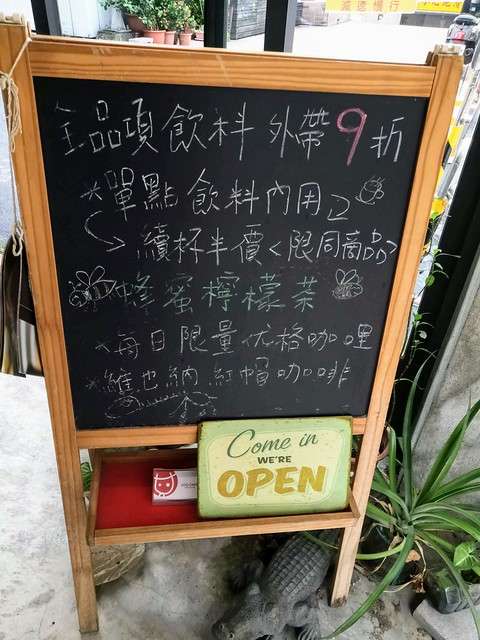 減速慢行
全品項飲料 外帶9折
*單點飲料內用
續杯半價<限同商品>
蜂蜜檸檬茶
*每日限量优格咖哩
*維也納 紅帽咖啡
Come in
WE'RE
OPEN